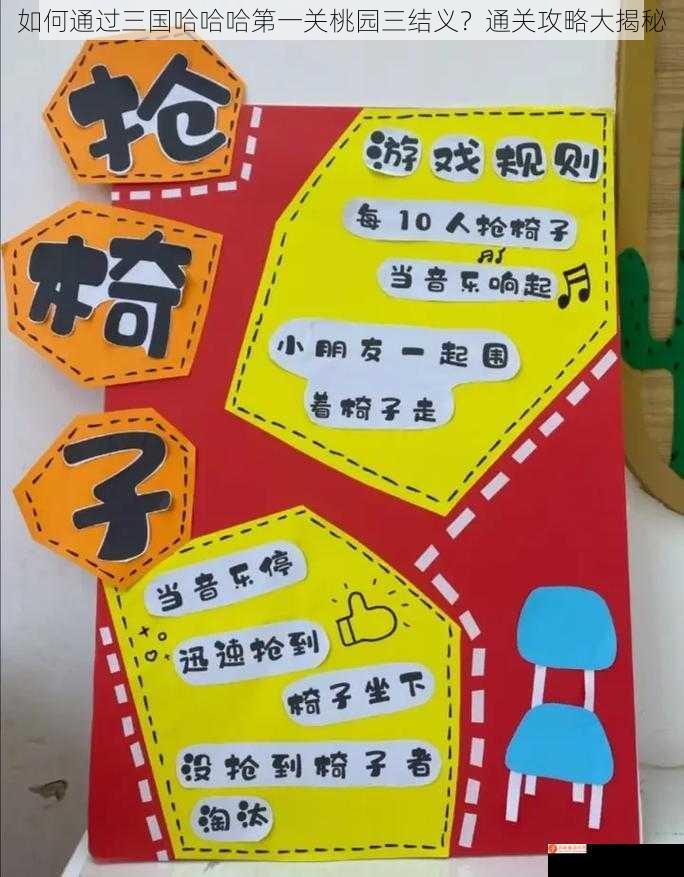 如何通过三国哈哈哈第一关桃园三结义？通关攻略大揭秘
抢
椅
子
游戏规则
每10人抢椅子
当音乐响起
小朋友一起围
着椅子走
当音乐停
迅速抢到
椅子坐下
没抢到椅子者
淘汰